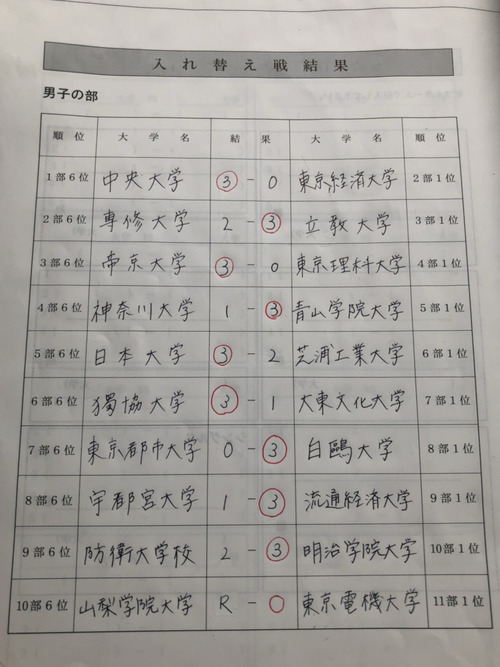 入れ替え戦結果
男子の部
順位 大学名 結果 大学名 順位
1部6位 中央大学 3-0 東京経済大学 2部1位
2部6位 専修大学 2-3 立教大学 3部1位
3部6位 帝京大学 3-0 東京理科大学 4部1位
4部6位 神奈川大学 1-3 青山学院大学 5部1位
5部6位 日本大学 3-2 芝浦工業大学 6部1位
6部6位 獨協大学 3-1 大東文化大学 7部1位
7部6位 東京都市大学 0-3 白鷗大学 8部1位
8部6位 宇都宮大学 1-3 流通経済大学 9部1位
9部6位 防衛大学校 2-3 明治学院大学 10部1位
10部6位 山梨学院大学 R-0 東京電機大学 11部1位